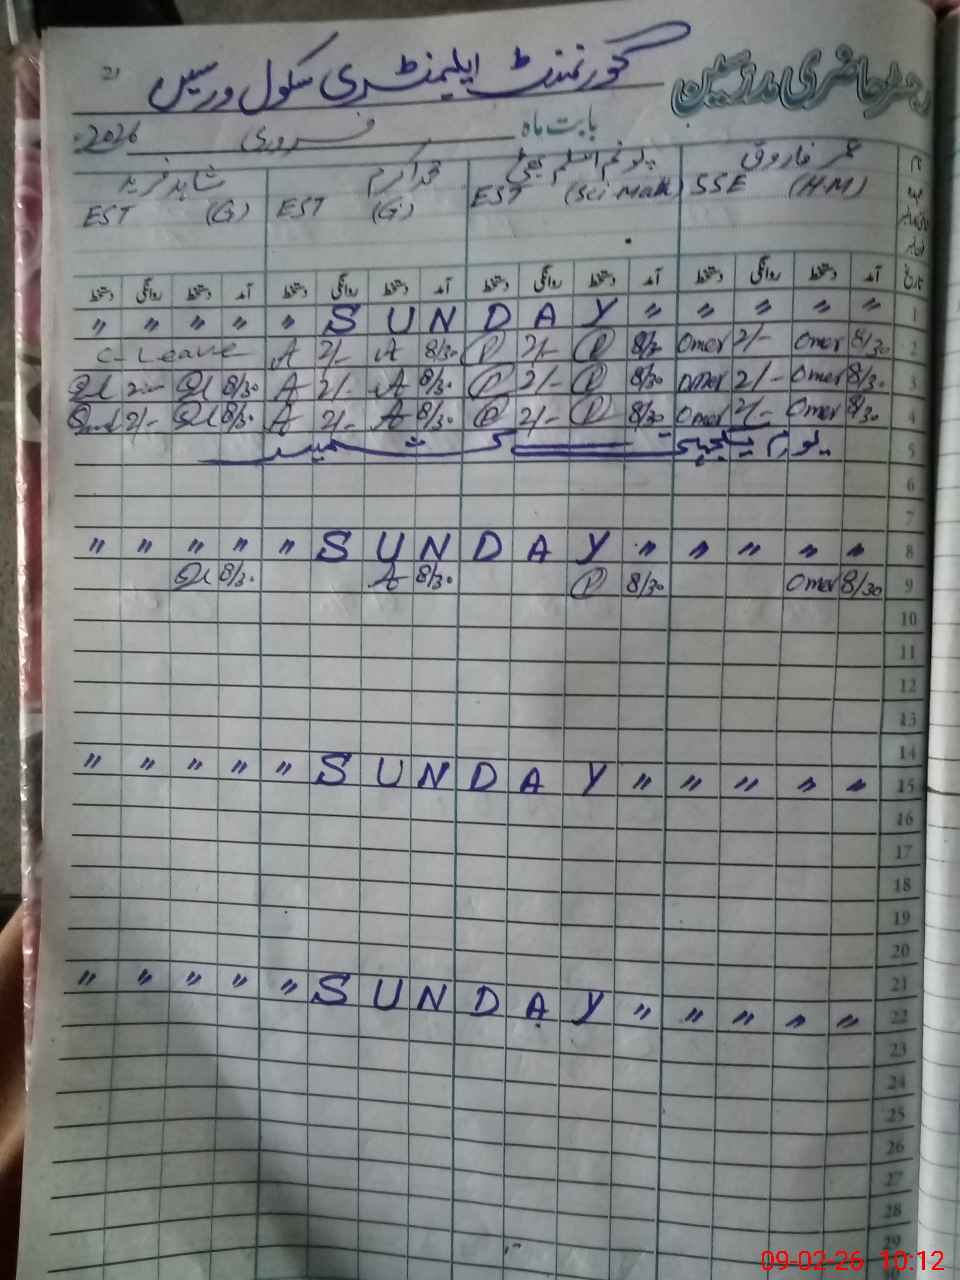 21
گورنمنٹ ایلیمنٹری سکول ورسیں
رجسٹر حاضری مدرسین
بابت ماہ فروری 2026
عمر فاروق
SSE (H.M)
EST (Sci Math)
محمد اکرم
EST (G)
شاہد فرید
EST (G)
تاریخ آمد دستخط روانگی دستخط آمد دستخط روانگی دستخط آمد دستخط روانگی دستخط آمد دستخط روانگی دستخط
〃 〃 〃 〃 〃 S U N D A Y 〃 〃 〃 〃 〃 1
C-Leave A 2/- A 8/30 P 2/- P 8/30 Omer 2/- Omer 8/30 2
2/- 8/30 A 2/- A 8/30 P 2/- P 8/30 Omer 2/- Omer 8/30 3
2/- 8/30 A 2/- A 8/30 P 2/- P 8/30 Omer 2/- Omer 8/30 4
یوم یکجہتی کشمیر 5
6
7
〃 〃 〃 〃 〃 S U N D A Y 〃 〃 〃 〃 〃 8
8/30 A 8/30 P 8/30 Omer 8/30 9
10
11
12
13
14
〃 〃 〃 〃 〃 S U N D A Y 〃 〃 〃 〃 〃 15
16
17
18
19
20
21
〃 〃 〃 〃 〃 S U N D A Y 〃 〃 〃 〃 〃 22
23
24
25
26
27
28
29
09-02-26 10:12